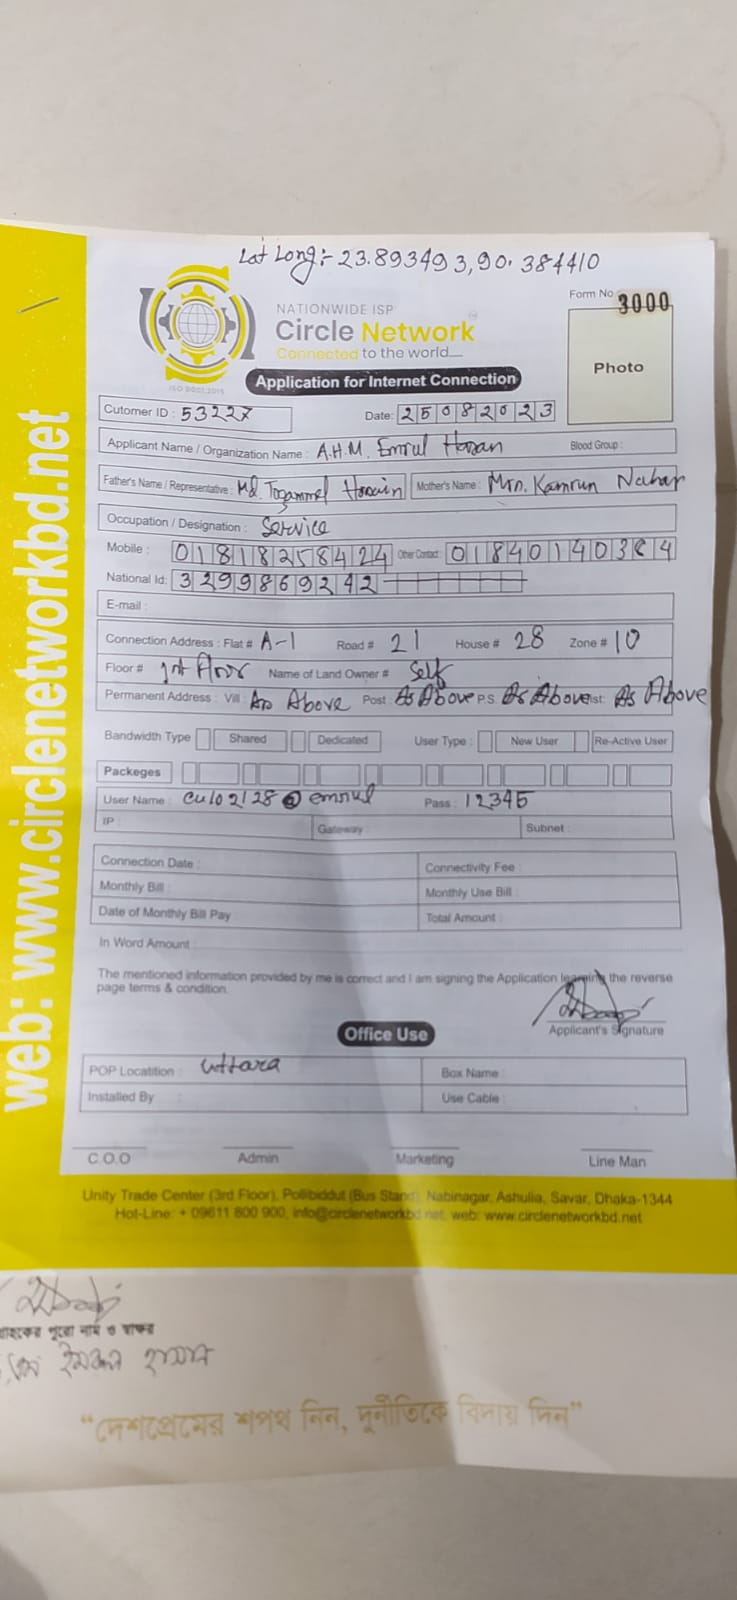 Lat Long:- 23.893493,90.384410
NATIONWIDE ISP
Circle Network
Connected to the world__
ISO 9001:2015
Form No 3000
Photo
Application for Internet Connection
Cutomer ID : 53227 Date: 25082023
Applicant Name / Organization Name : A.H.M. Emrul Hasan Blood Group :
Father's Name / Representative : Md. Togammel Hossain Mother's Name : Mrs. Kamrun Nahar
Occupation / Designation : Service
Mobile : 01818258424 Other Contact: 01840140364
National Id: 3299869242
E-mail :
Connection Address : Flat # A-1 Road # 21 House # 28 Zone # 10
Floor # 1st Floor Name of Land Owner # Self
Permanent Address : Vill : As Above Post : As Above P.S. As Above ist: As Above
Bandwidth Type Shared Dedicated User Type : New User Re-Active User
Packeges
User Name : cu102128@emrul Pass : 12345
IP : Gateway : Subnet :
Connection Date : Connectivity Fee :
Monthly Bill : Monthly Use Bill :
Date of Monthly Bill Pay Total Amount :
In Word Amount
The mentioned information provided by me is correct and I am signing the Application the reverse
page terms & condition.
Applicant's Signature
Office Use
POP Locatition : Uttara Box Name :
Installed By : Use Cable :
C.O.O Admin Marketing Line Man
Unity Trade Center (3rd Floor), Pollibiddut (Bus Stand), Nabinagar, Ashulia, Savar, Dhaka-1344
Hot-Line: + 09611 800 900, info@circlenetworkbd.net, web: www.circlenetworkbd.net
web: www.circlenetworkbd.net
পুরো নাম ও স্বাক্ষর
হাসান
“দেশপ্রেমের শপথ নিন, দুর্নীতিকে বিদায় দিন”